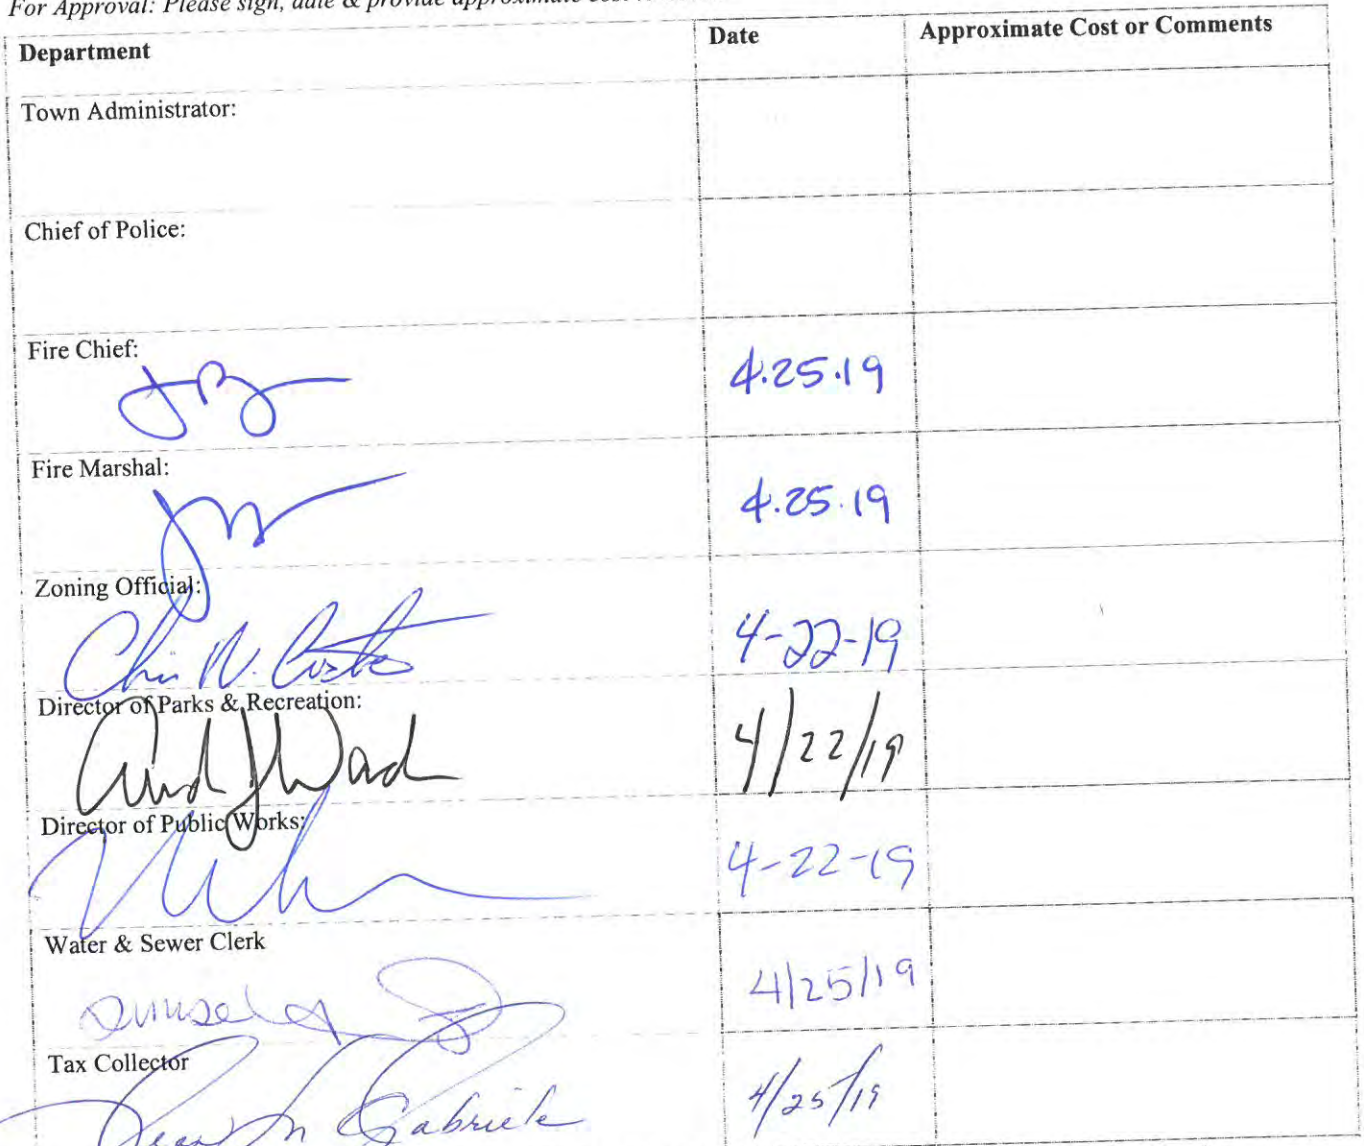 For Approval: Please sign, date & provide approximate cost
Department Date Approximate Cost or Comments
Town Administrator:
Chief of Police:
Fire Chief:
4.25.19
Fire Marshal:
4.25.19
Zoning Official:
4-22-19
Director of Parks & Recreation:
4/22/19
Director of Public Works:
4-22-19
Water & Sewer Clerk
4/25/19
Tax Collector
Gabriele 4/25/19